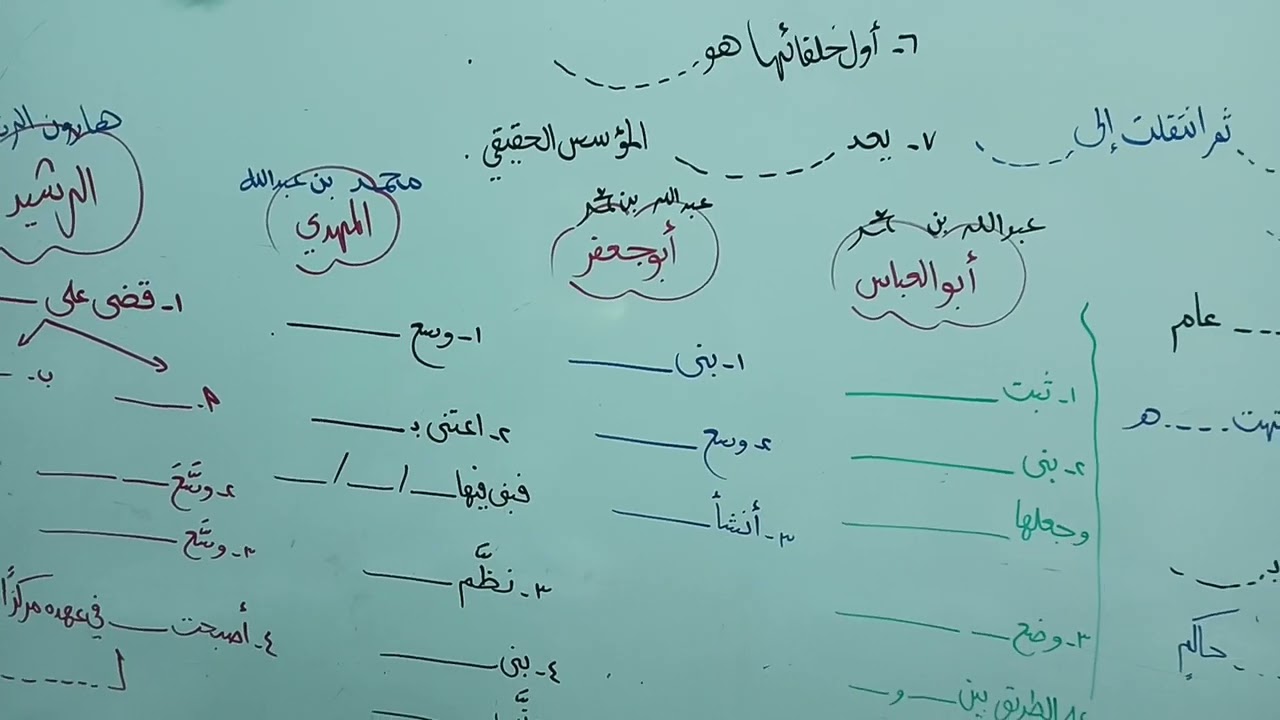 ٦- أول خلفائها هو
ثم انتقلت إلى
٧- يعد المؤسس الحقيقي.
عبد الله بن محمد
أبو العباس
عبد الله بن محمد
أبو جعفر
محمد بن عبدالله
المهدي
هارون
الرشيد
عام
هـ
حاكم
١- ثبت
٢- بنى
وجعلها
٣- وضع
الطريق بين و
١- بنى
٢- وسع
٣- أنشأ
١- وسع
٢- اعتنى بـ
فبنى فيها / /
٣- نظّم
٤- بنى
١- قضى على
أ-
ب-
٢- وسَّعَ
٣- وسَّع
٤- أصبحت في عهده مركزًا
لـ